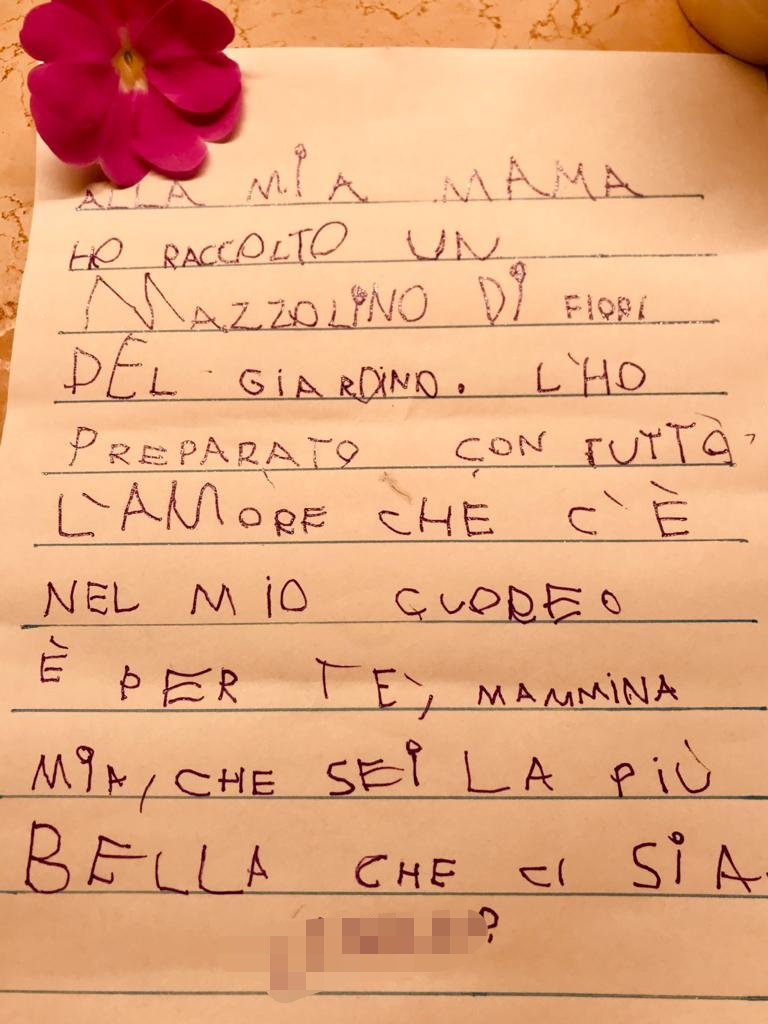 ALLA MIA MAMA
HO RACCOLTO UN
MAZZOLINO DI FIORI
DEL GIARDINO. L'HO
PREPARATO CON TUTTO
L'AMORE CHE C'È
NEL MIO CUORE.
È PER TE, MAMMINA
MIA, CHE SEI LA PIÙ
BELLA CHE CI SIA.